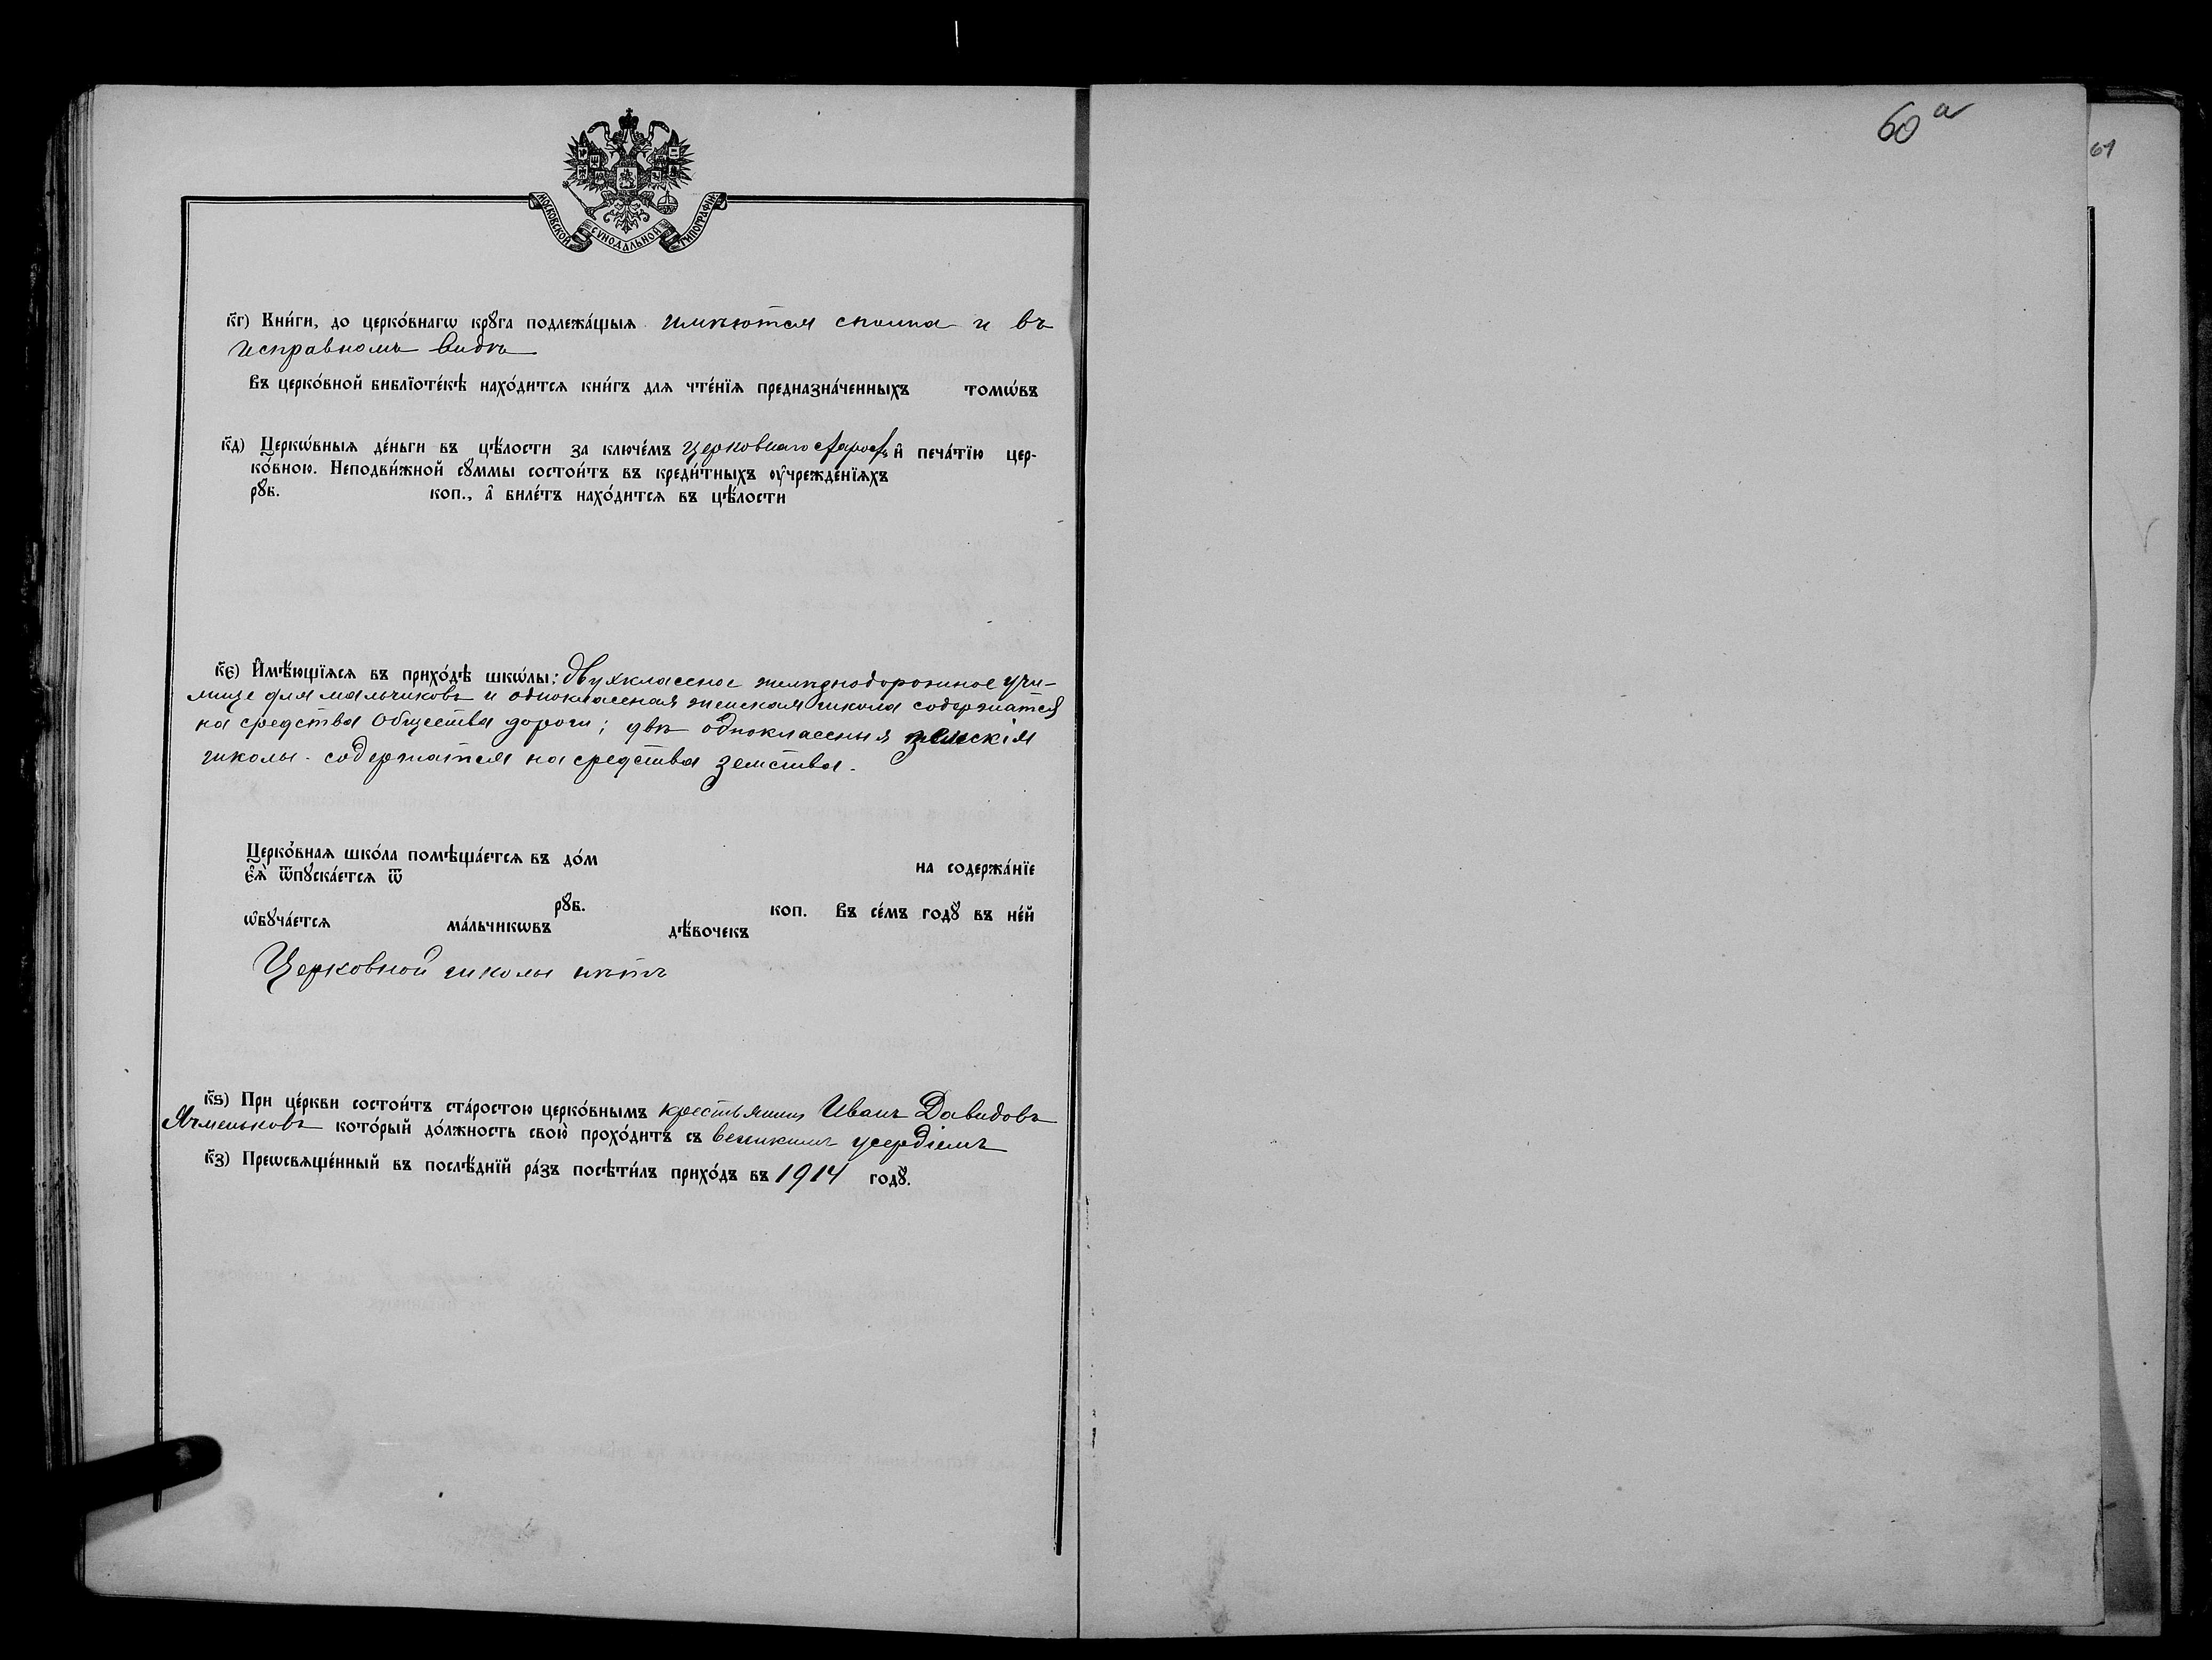 60 а
61
МОСКОВСКОЙ СѴНОДАЛЬНОЙ ТИПОГРАФІИ
к҃г) Кни́ги, до церко́внагѡ крꙋ́га подлежа́щыѧ имѣются сполна и въ
исправномъ видѣ
Въ церко́вной библїоте́кѣ нахо́дитсѧ кни́гъ для чте́нїѧ предназна́ченныхъ томѡ́въ
к҃д) Церкѡ́вныѧ де́ньги въ цѣ́лости за ключе́мъ церковнаго старосты и҆ печа́тїю цер-
ко́вною. Неподви́жной сꙋ́ммы состои́тъ въ креди́тныхъ ᲂу҆чрежде́нїѧхъ
рꙋб. коп., а҆ биле́тъ нахо́дитсѧ въ цѣ́лости
к҃є) И҆мѣ́ющїѧсѧ въ прихо́дѣ шкѡ́лы: двухклассное желѣзнодорожное учи-
лище для мальчиковъ и одноклассная женская школа содержатся
на средства Общества дороги; двѣ одноклассныя земскія
школы. содержатся на средства земства.
Церко́внаѧ шко́ла помѣща́етсѧ въ до́м на содержа́нїе
є҆ѧ̀ ѿпꙋска́етсѧ ѿ
рꙋб. коп. Въ се́мъ годꙋ̀ въ не́й
ѡ҆бꙋча́етсѧ ма́льчикѡвъ дѣ́вочекъ
Церковной школы нѣтъ
к҃ѕ) При це́ркви состои́тъ ста́ростою церко́внымъ крестьянинъ Иванъ Давидовъ
Ячменьковъ кото́рый до́лжность свою̀ прохо́дитъ съ великимъ усердіемъ
к҃з) Преѡсвѧще́нный въ послѣ́днїй ра́зъ посѣти́лъ прихо́дъ въ 1914 годꙋ̀.